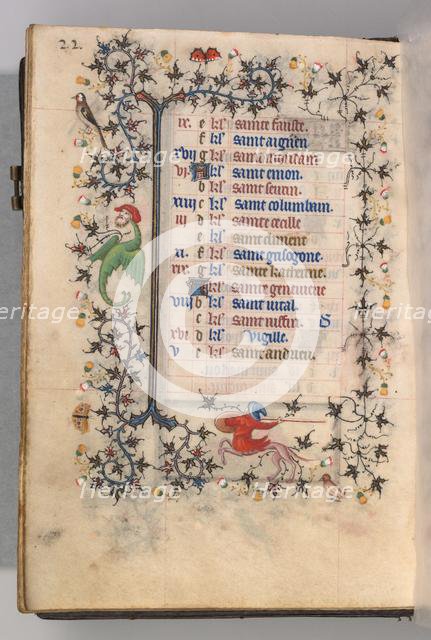 22.
ix. e kl' Sainte fauste.
f kl' Saint aignen
xvij g kl' Sainte
vj A kl' Saint emon.
b kl' Saint seurin.
xiiij c kl' Saint columbain.
iij d kl' Sainte cecille
e kl' Saint climent
xi. f kl' Saint grisogone.
xix g kl' Sainte katherine.
A kl' Sainte genevieve
viij b kl' Saint vital.
c kl' Saint saffrin. S
xvi d kl' Vigille.
v e kl' Saint andrieu.
Heritage Images